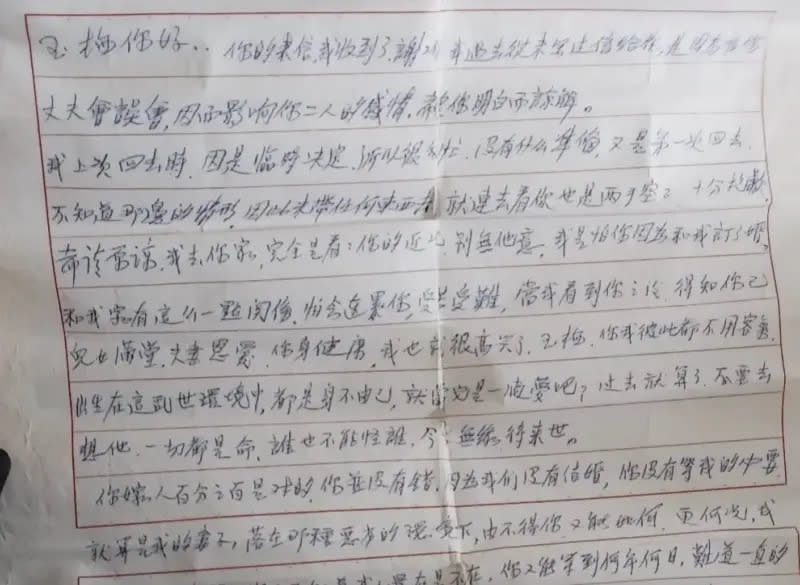 玉梅你好.. 你的来信我收到了,謝謝,我过去從未写过信给你,是因为怕你
丈夫會誤會,因而影响你二人的感情,就你明白而諒解。
我上次回去時,因是臨時决定,所以很匆忙,没有什么準備,又是第一次回去,
不知道那邊的情形,因此未帶任何東西去,就連去看你也是两手空空,十分抱歉,
希諒,我去你家,完全是看看你的近况,别無他意,我是怕你因为和我訂了婚,
和我家有這么一點関係,怕會連累你,受苦受難,當我看到你之後,得知你已
兒女滿堂,夫妻恩愛,你身健康,我也就很高兴了,玉梅,你我彼此都不用客氣,
生在這乱世環境中,都是身不由己,就當它是一塲夢吧?过去就算了,不要去
想他,一切都是命,誰也不能怪誰,今生無緣,待來世。
你嫁人百分之百是对的,你並没有錯,因为我们没有结婚,你没有等我的必要
就算是我的妻子,落在那種恶劣的環境下,由不得你,又能如何,更何况,我
是不在,你又能等到何年何日,難道一直的